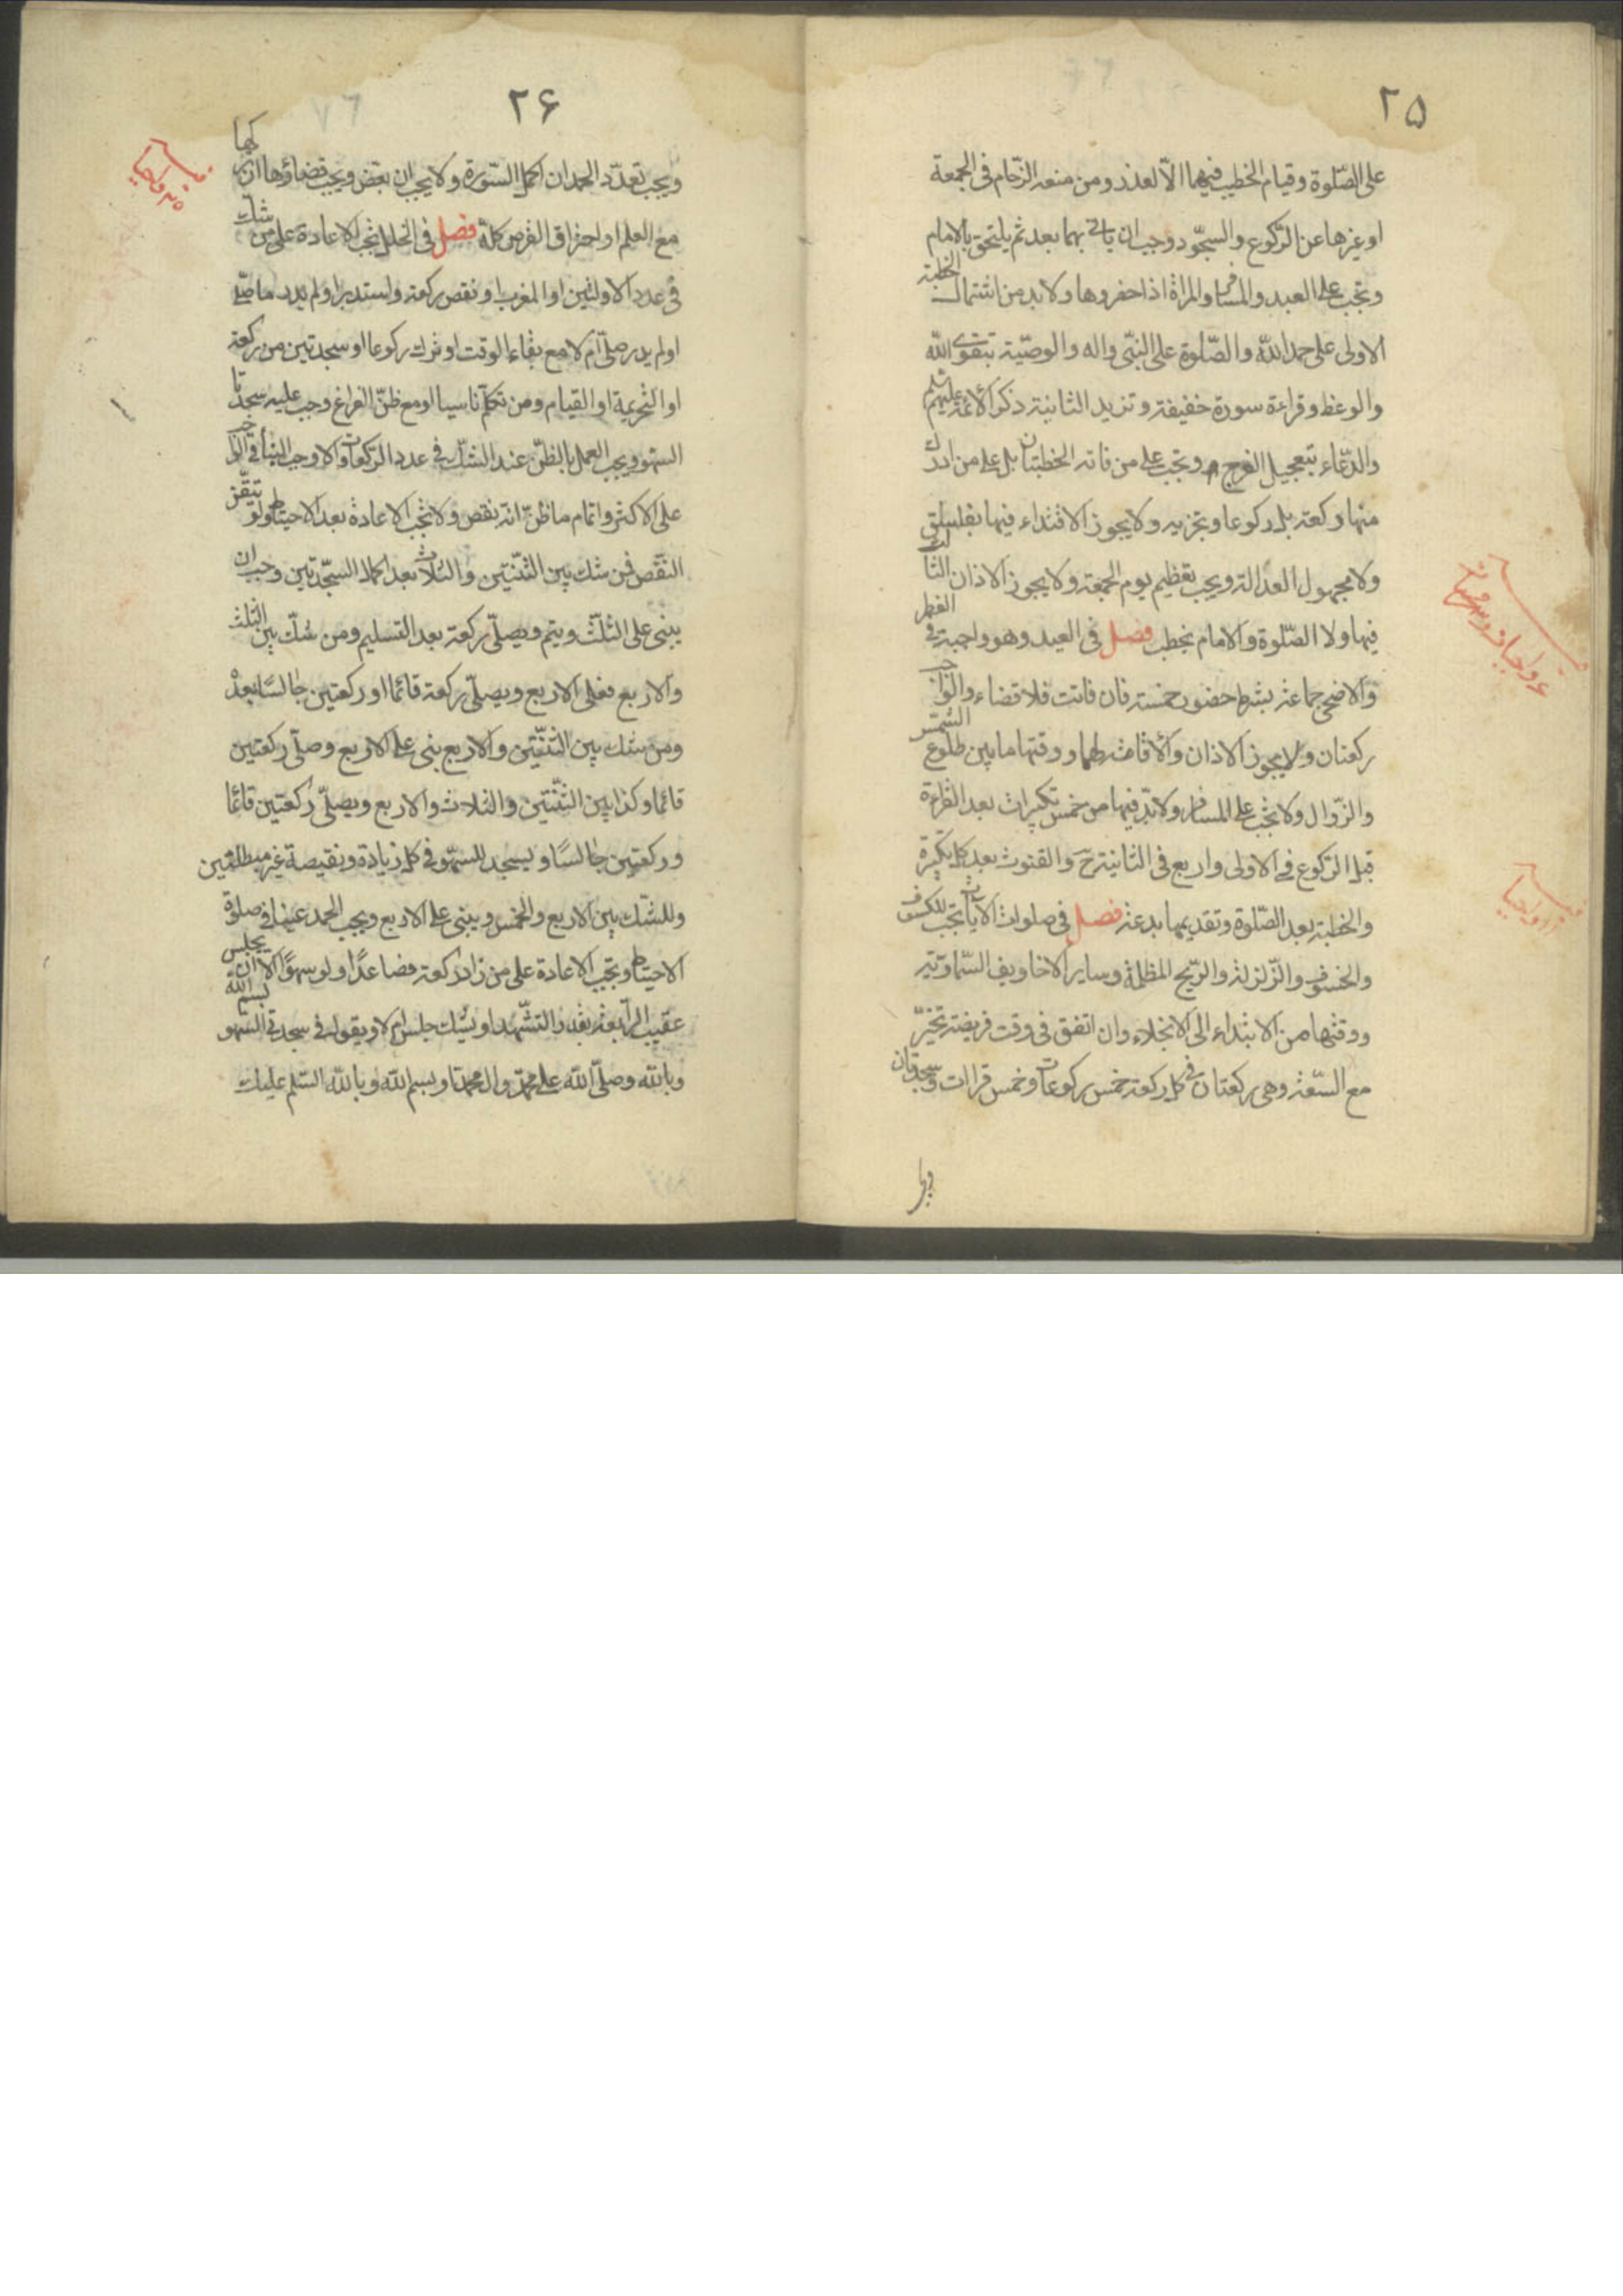 ٢٥
على الصّلوة وقيام الخطيب فيهما الّا لعذر ومن منعه الزّحام فى الجمعة
او غيرها عن الرّكوع والسجّود وجب ان ياتى بهما بعد ثم يلتحق بالامام
وتجب على العبد والمسافر والمراة اذا حضروها ولا بد من اشتمال الخطبة
الاولى على حمد اللّه والصّلوة على النبّى واله والوصيّة بتقوى اللّه
والوعظ وقراءة سورة خفيفة وتزيد الثانية ذكر الأئمة عليهم السّلم
والدّعاء بتعجيل الفرج وتجب على من فاته الخطبتان بل على من ادرك
منها ركعة بل ركوعا وتجزيه ولا يجوز الاقتداء فيها بفاسق
ولا مجهول العدالة ويجب تعظيم يوم الجمعة ولا يجوز الاذان الثالث
فيها ولا الصّلوة والامام يخطب فصل فى العيد وهو واجبة فى الفطر
والاضحى جماعة بشرط حضور خمسة فان فاتت فلا قضاء والواجب
ركعتان ولا يجوز الاذان والاقامة لهما ووقتها ما بين طلوع الشمس
والزّوال ولا تجب على المسافر ولا بدّ فيها من خمس تكبيرات بعد القراءة
قبل الرّكوع فى الاولى واربع فى الثانية ح والقنوت بعد كل تكبيرة
والخطبة بعد الصّلوة وتقديمها بدعة فصل فى صلوات الآيات تجب للكسوف
والخسوف والزّلزلة والرّيح المظلمة وساير الاخاويف السّماويّة
ووقتها من الابتداء الى الانجلاء وان اتفق فى وقت فريضة تخيّر
مع السّعة وهى ركعتان فى كل ركعة خمس ركوعات وخمس قراات وسجدتان
٢۶
ويجب تعدّد الحمد ان اكمل السّورة ولا يجب ان بعّض ويجب قضاؤها ان تركها
مع العلم او احتراق القرص كلّه فصل فى الخلل تجب الاعادة على من شك
فى عدد الاولتين او المغرب او نقص ركعة واستدبر او لم يدر ما صلّى
او لم يدر صلّى ام لا مع بقاء الوقت او ترك ركوعا او سجدتين من ركعة
او التّحريمة او القيام ومن تكلّم ناسيا او مع ظنّ الفراغ وجب عليه سجدتا
السّهو ويجب العمل بالظّن عند الشّك فى عدد الرّكعات والا وجب البناء فى الواجب
على الاكثر واتمام ما ظنّ انّه نقص ولا تجب الاعادة بعد الاحتياط ولو تيقّن
النقص فمن شك بين الثنتين والثلاث بعد اكمال السّجدتين وجب ان
يبنى على الثلث ويتم ويصلّى ركعة بعد التسليم ومن شك بين الثلث
والاربع فعلى الاربع ويصلّى ركعة قائما او ركعتين جالسًا بعده
ومن شك بين الثنتين والاربع بنى على الاربع وصلّى ركعتين
قائما وكذا بين الثنتين والثلاث والاربع ويصلّى ركعتين قائما
وركعتين جالسًا ويسجد للسّهو فى كل زيادة ونقيصة غير مبطلتين
وللشّك بين الاربع والخمس ويبنى على الاربع ويجب الحمد عينا فى صلوة
الاحتياط وتجب الاعادة على من زاد ركعة فصاعدًا ولو سهوًا الا ان يجلس
عقيب الرّابعة بقدر التشّهد او يشك جلس ام لا ويقول فى سجدتى السّهو بسم اللّه
وباللّه وصلّى اللّه على محمّد وال محمد او بسم اللّه وباللّه السّلم عليك